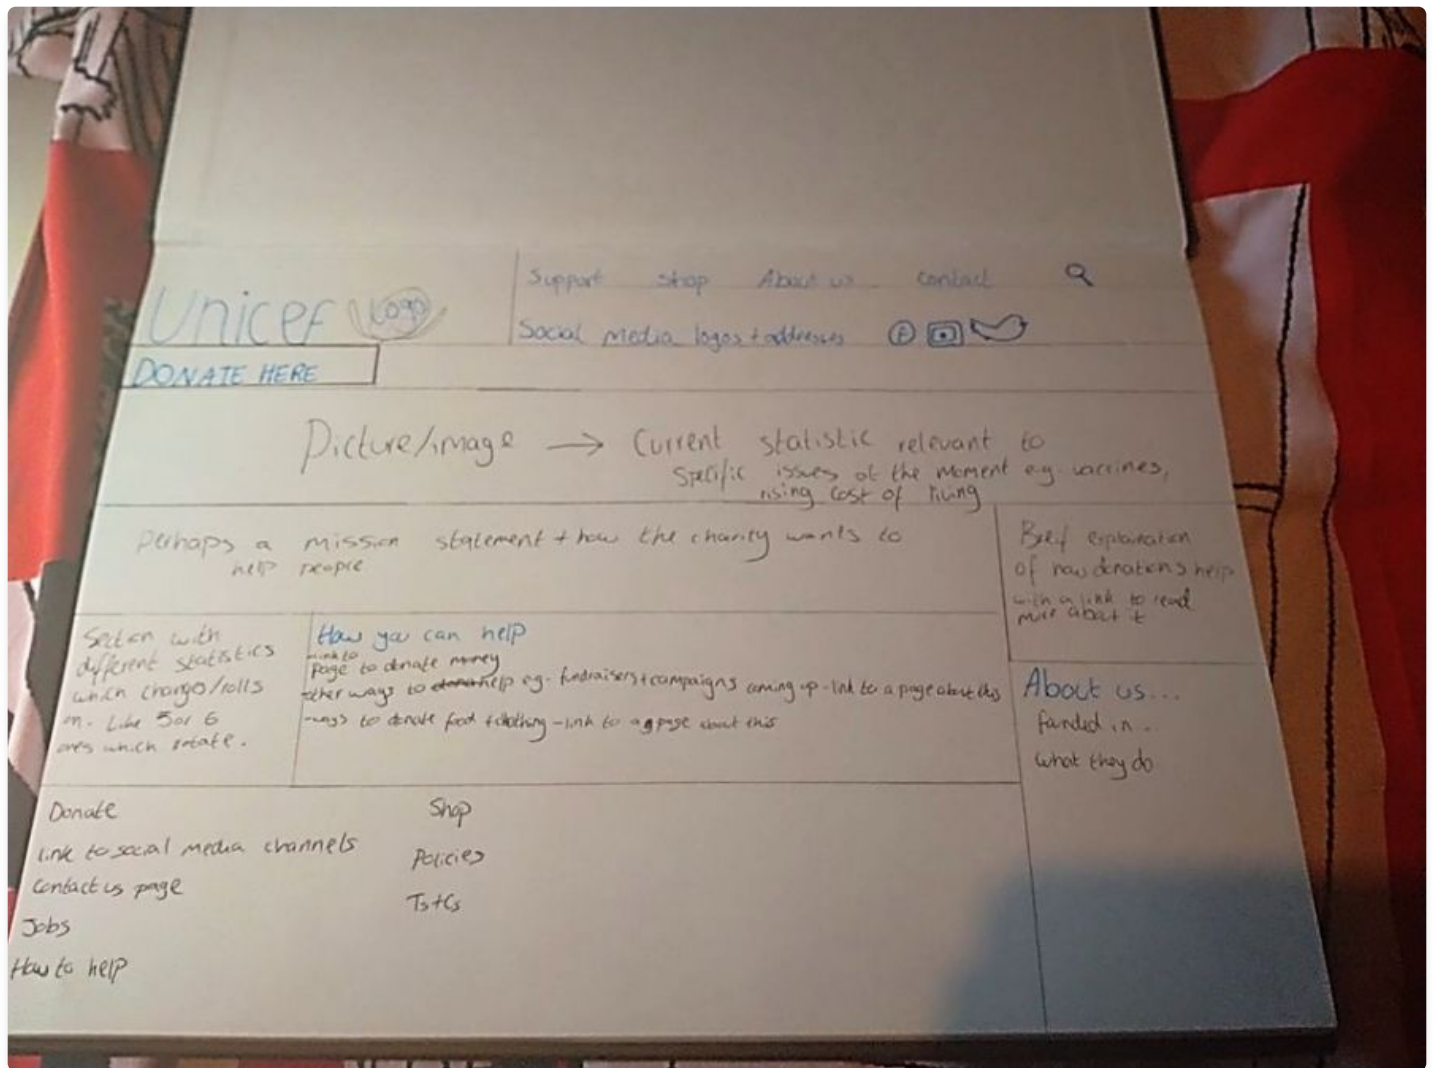 Unicef Logo
Support Shop About us Contact
Social media logos + addresses f
DONATE HERE
Picture/image → Current statistic relevant to
specific issues at the moment e.g. vaccines,
rising cost of living
Perhaps a mission statement + how the charity wants to
help people
Brief explaination
of how donations help
with a link to read
more about it
Section with
different statistics
which change/rolls
on. Like 5 or 6
ones which rotate.
How you can help
- link to
page to donate money
other ways to help eg. fundraisers + campaigns coming up - link to a page about this
- ways to donate food + clothing - link to a page about this
About us...
funded in..
what they do
Donate
link to social media channels
Contact us page
Jobs
How to help
Shop
Policies
Ts+Cs